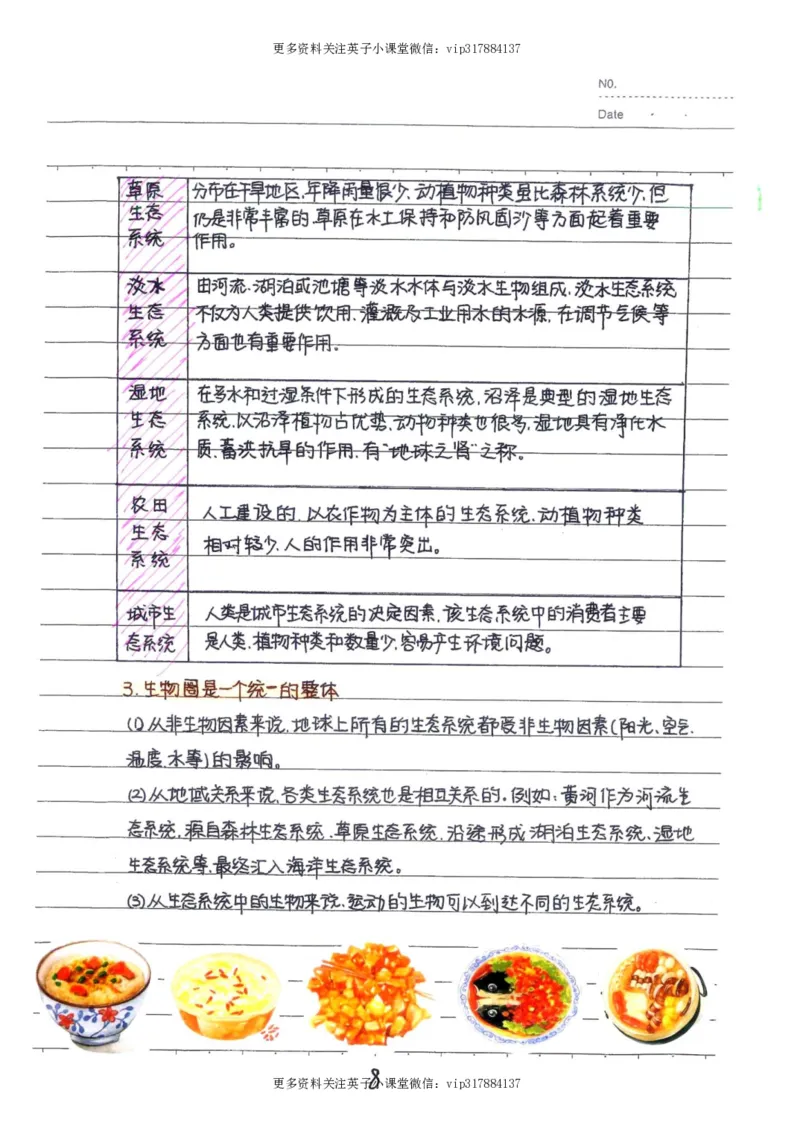 更多资料关注英子小课堂微信：vip317884137
NO.
Date
草原 分布在干旱地区,年降雨量很少,动植物种类虽比森林系统少,但
生态 仍是非常丰富的.草原在水土保持和防风固沙等方面起着重要
系统 作用。
淡水 由河流.湖泊或池塘等淡水水体与淡水生物组成.淡水生态系统
生态 不仅为人类提供饮用.灌溉及工业用水的水源,在调节气候等
系统 方面也有重要作用.
湿地 在多水和过湿条件下形成的生态系统,沼泽是典型的湿地生态
生态 系统.以沼泽植物占优势,动物种类也很多,湿地具有净化水
系统 质.蓄洪抗旱的作用.有"地球之肾"之称。
农田 人工建设的.以农作物为主体的生态系统.动植物种类
生态 相对较少.人的作用非常突出。
系统
城市生 人类是城市生态系统的决定因素,该生态系统中的消费者主要
态系统 是人类,植物种类和数量少,容易产生环境问题。
3.生物圈是一个统一的整体
(1)从非生物因素来说,地球上所有的生态系统都受非生物因素(阳光、空气.
温度.水等)的影响。
(2)从地域关系来说,各类生态系统也是相互关系的.例如:黄河作为河流生
态系统,源自森林生态系统.草原生态系统.沿途形成湖泊生态系统、湿地
生态系统等,最终汇入海洋生态系统。
(3)从生态系统中的生物来说.运动的生物可以到达不同的生态系统。
8
更多资料关注英子小课堂微信：vip317884137